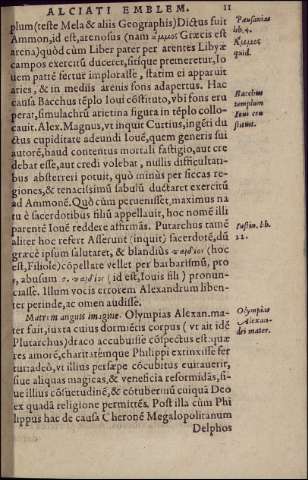 ALCIATI EMBLEM. 11
plum (teste Mela & aliis Geographis) Dictus fuit
Ammon, id est, arenosus (nam Græcis est
arena) quòd cùm Liber pater per arentes Libyæ
campos exercitū duceret, sitíque premeretur, Io
uem patrē fertur implorasse, statim ei apparuit
aries, & in mediis arenis fons adapertus. Hac
causa Bacchus tēplū Ioui cōstituto, vbi fons eru
perat, simulachrū arietina figura in tēplo collo-
cauit. Alex. Magnus, vt inquit Curtius, ingēti du
ctus cupiditate adeundi Iouē, quem generis sui
autorē, haud contentus mortali fastigio, aut cre
debat esse, aut credi volebat, nullis difficultati-
bus absterreri potuit, quò minùs per siccas re-
giones, & tenacissimū sabulū ductaret exercitū
ad Ammonē. Quò cùm peruenisset, maximus na
tu è sacerdotibus filiū appellauit, hoc nomē illi
parentē Iouē reddere affirmās. Putarchus tamē
aliter hoc refert Asserunt (inquit) sacerdotē, dū
græcè ipsum salutaret, & blandiùs (hoc
est, Filiole) cōpellare vellet per barbarismū, pro
ν, abusum (id est, Iouis fili) pronun-
ciasse. Illum vocis errorem Alexandrum liben-
ter perinde, ac omen audisse.
Matrem anguis imagine. Olympias Alexan. ma-
ter fuit, iuxta cuius dormiētis corpus (vt ait idē
Plutarchus) draco accubuisse cōspectus est: quæ
res amorē, charitatémque Philippi extinxisse fer
tur: adeò, vt illius persæpe cōcubitus euitauerit,
siue aliquas magicas, & veneficia reformidās, si-
ue illius cōsuetudinē, & cōtuberniū cuiquā Deo
ex quadā religione permittēs. Post illa cùm Phi
lippus hac de causa Cheronē Megalopolitanum
Delphos
Pausanias
lib. 4.
quid.
Bacchus
templum
Ioui con
stituit.
lib.
22.
Olympias
Alexan-
dri mater.